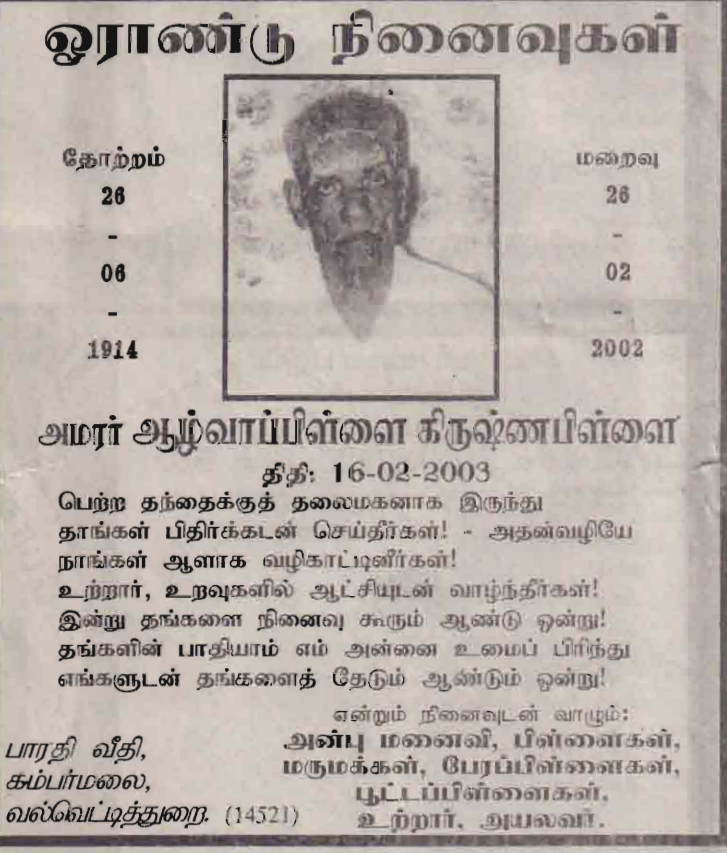 ஓராண்டு நினைவுகள்
தோற்றம்
26
-
06
-
1914
மறைவு
26
-
02
-
2002
அமரர் ஆழ்வாப்பிள்ளை கிருஷ்ணபிள்ளை
திதி: 16-02-2003
பெற்ற தந்தைக்குத் தலைமகனாக இருந்து
தாங்கள் பிதிர்க்கடன் செய்தீர்கள்! - அதன்வழியே
நாங்கள் ஆளாக வழிகாட்டினீர்கள்!
உற்றார், உறவுகளில் ஆட்சியுடன் வாழ்ந்தீர்கள்!
இன்று தங்களை நினைவு கூரும் ஆண்டு ஒன்று!
தங்களின் பாதியாம் எம் அன்னை உமைப் பிரிந்து
எங்களுடன் தங்களைத் தேடும் ஆண்டும் ஒன்று!
என்றும் நினைவுடன் வாழும்:
அன்பு மனைவி, பிள்ளைகள்,
மருமக்கள், பேரப்பிள்ளைகள்,
பூட்டப்பிள்ளைகள்,
உற்றார், அயலவர்.
பாரதி வீதி,
கம்பர்மலை,
வல்வெட்டித்துறை. (14521)